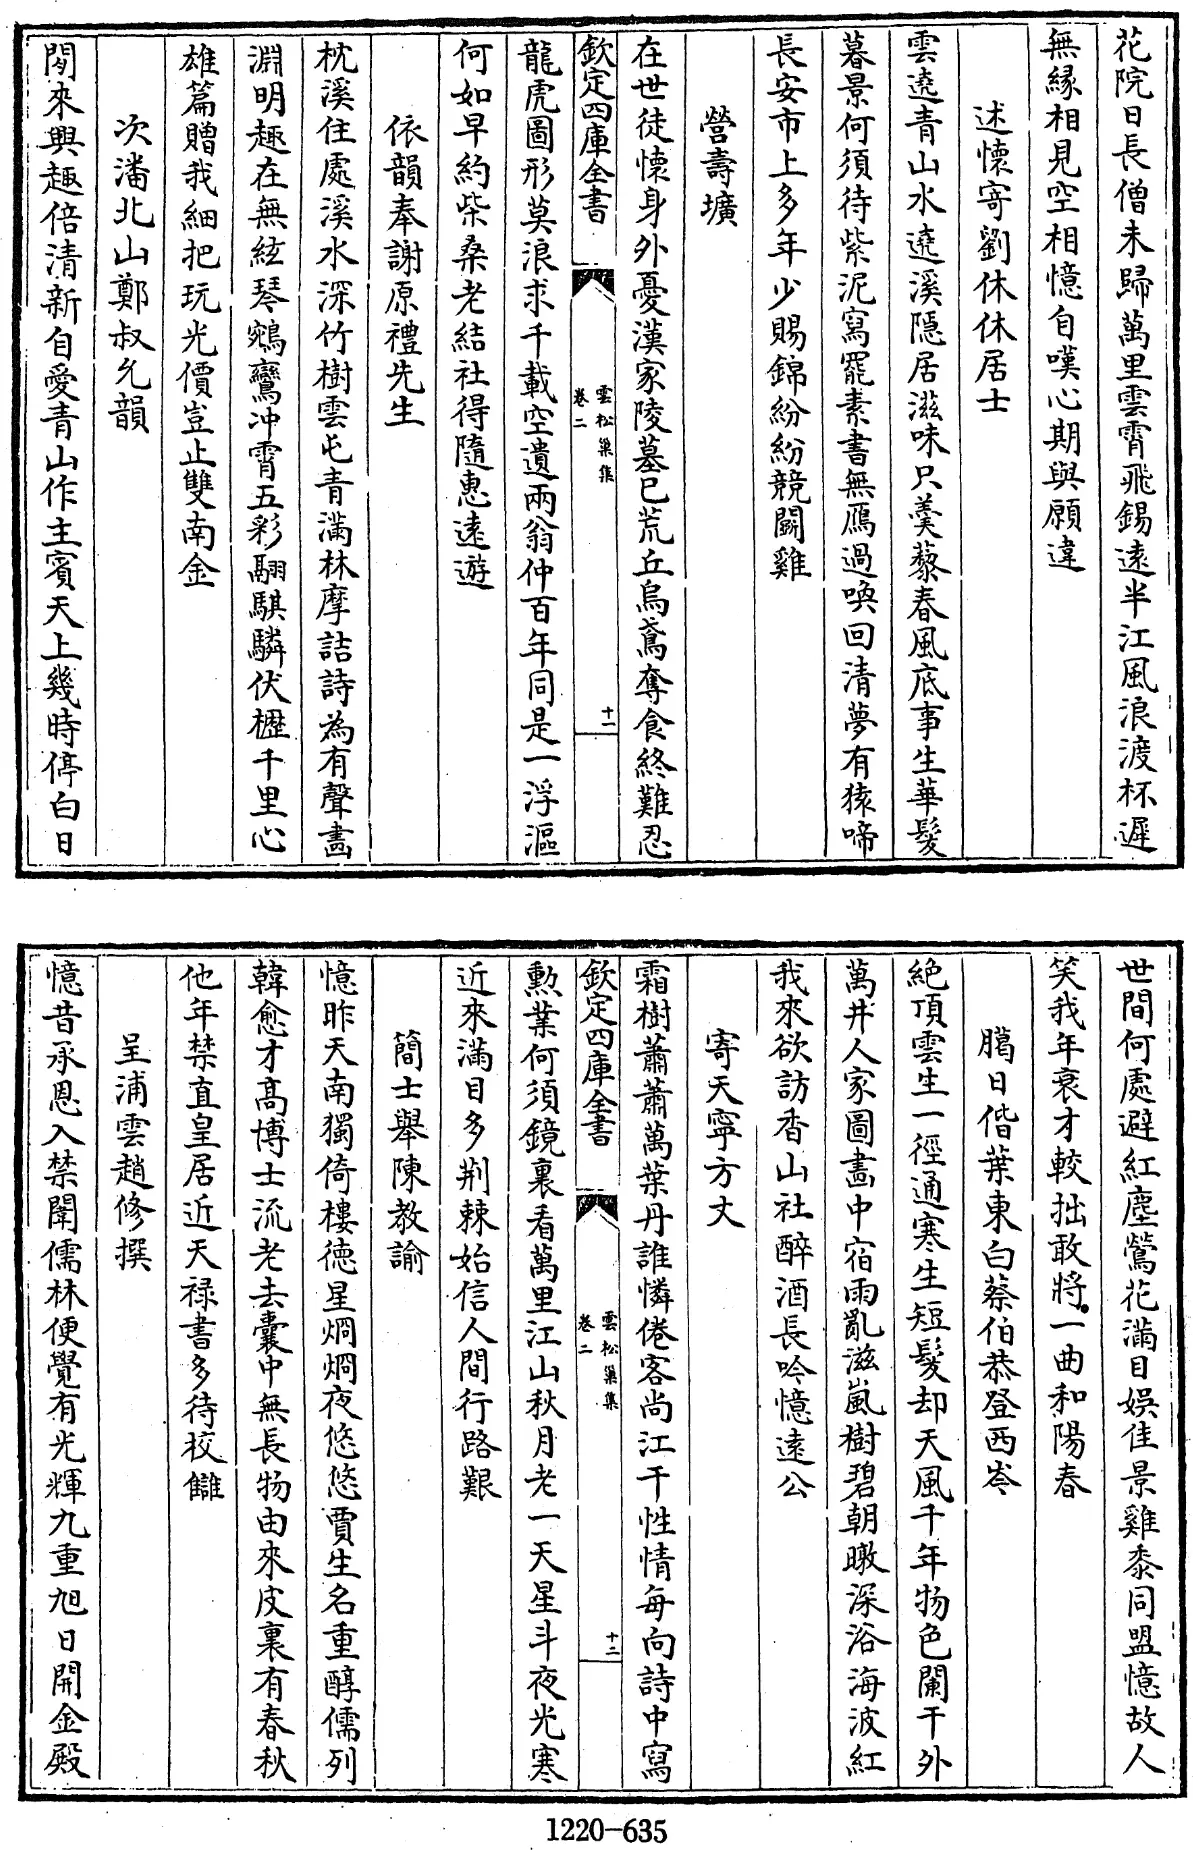 花院日長僧未歸萬里雲霄飛錫遠半江風浪渡杯遲
無緣相見空相憶自嘆心期與願違
述懷寄劉休休居士
雲遶青山水遶溪隠居滋味只羮藜春風底事生華髮
暮景何須待紫泥寫罷素書無鴈過喚回清夢有猿啼
長安市上多年少賜錦紛紛競鬭雞
營壽壙
在世徒懷身外憂漢家陵墓已荒丘烏鳶奪食終難忍
欽定四庫全書
雲松巢集
卷二
十一
龍虎圖形莫浪求千載空遺兩翁仲百年同是一浮漚
何如早約柴桑老結社得隨惠遠遊
依韻奉謝原禮先生
枕溪住處溪水深竹樹雲屯青滿林摩詰詩為有聲畵
淵明趣在無絃琴鵷鸞冲霄五彩翮騏驎伏櫪千里心
雄篇贈我細把玩光價豈止雙南金
次潘北山鄭叔允韻
閒來興趣倍清新自愛青山作主賓天上幾時停白日
世間何處避紅塵鶯花滿目娯佳景雞黍同盟憶故人
笑我年衰才較拙敢將一曲和陽春
臈日偕葉東白蔡伯恭登西岑
絶頂雲生一徑通寒生短髮却天風千年物色闌干外
萬井人家圖畵中宿雨亂滋嵐樹碧朝暾深浴海波紅
我來欲訪香山社醉酒長吟憶遠公
寄天寧方丈
霜樹蕭蕭萬葉丹誰憐倦客尚江干性情每向詩中寫
欽定四庫全書
雲松巢集
卷二
十二
勲業何須鏡裏看萬里江山秋月老一天星斗夜光寒
近來滿目多荆棘始信人間行路艱
簡士舉陳教諭
憶昨天南獨倚樓徳星烱烱夜悠悠賈生名重醇儒列
韓愈才髙博士流老去囊中無長物由來皮裏有春秋
他年禁直皇居近天禄書多待校讎
呈浦雲趙修撰
憶昔承恩入禁闈儒林便覺有光輝九重旭日開金殿
1220-635